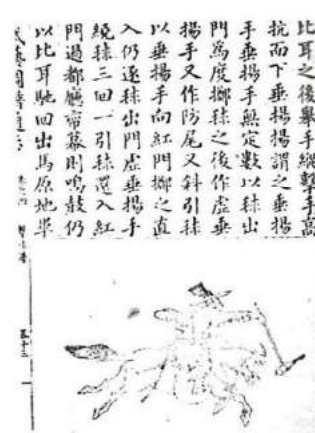 比耳之後擧手縱擊手高
抗而下垂揚揚謂之垂揚
手垂揚手無定數以毬出
門爲度擲毬之後作虛垂
揚手又作防尾又斜引毬
以垂揚手向紅門擲之直
入仍逐毬出門虛垂揚手
繞毬三回一引毬還入紅
門過都廳帟幕則鳴鼓仍
以比耳馳回出馬原地畢
武藝圖譜通志